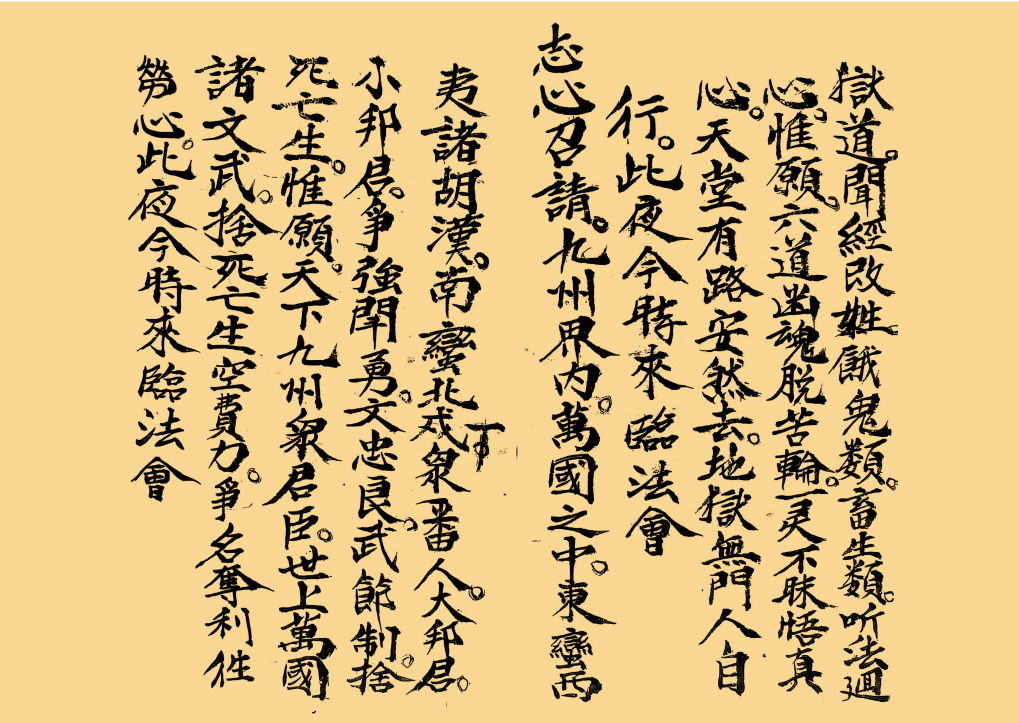 獄道。聞經改姓。餓鬼類。畜生類。听法廻
心。惟願。六道幽魂脱苦輪。一灵不昧悟真
心。天堂有路安然去。地獄無門人自
行。此夜今時來臨法會
志心召請。九州界内。萬國之中。東蠻西
夷諸胡漢。南蠻北戎衆番人。大邦君。
小邦君。爭強鬪勇。文忠良。武節制。捨
死亡生。惟願。天下九州衆君臣。世上萬國
諸文武。捨死亡生空費力。爭名奪利徃
勞心。此夜今時來臨法會